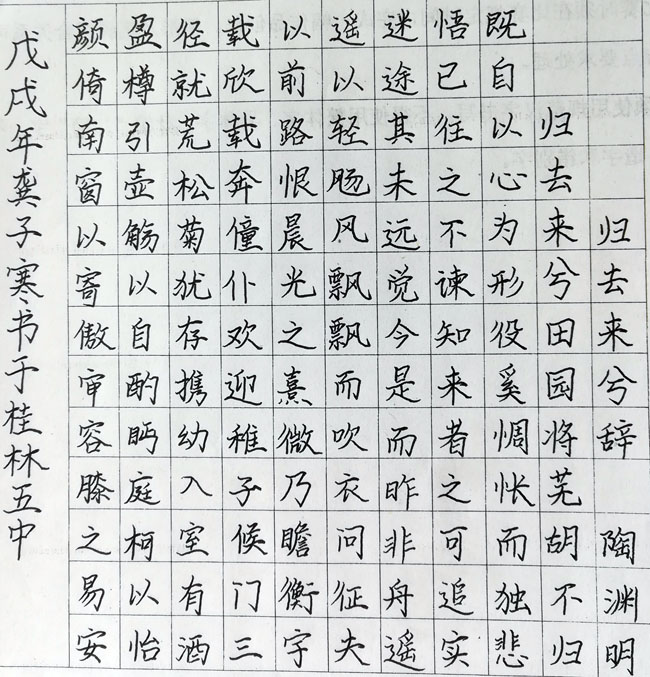 归去来兮辞 陶渊明
归去来兮田园将芜胡不归
既自以心为形役奚惆怅而独悲
悟已往之不谏知来者之可追实
迷途其未远觉今是而昨非舟遥
遥以轻飏风飘飘而吹衣问征夫
以前路恨晨光之熹微乃瞻衡宇
载欣载奔僮仆欢迎稚子候门三
径就荒松菊犹存携幼入室有酒
盈樽引壶觞以自酌眄庭柯以怡
颜倚南窗以寄傲审容膝之易安
戊戌年龚子寒书于桂林五中